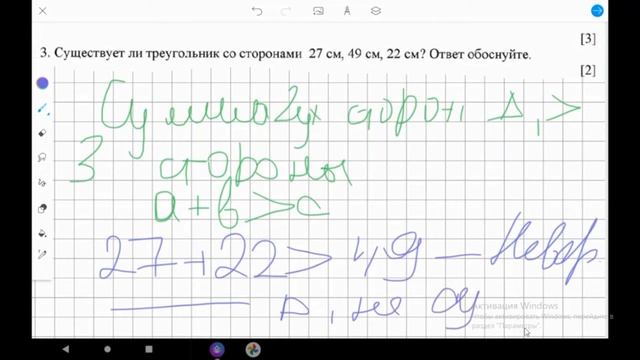 [3]
3. Существует ли треугольник со сторонами 27 см, 49 см, 22 см? Ответ обоснуйте.
[2]
Сумма 2ух сторон Δ, >
3 стороны
a + b > c
27 + 22 > 49 — Невер
Δ, не су
Активация Windows
Чтобы активировать Windows, перейдите в
раздел "Параметры".